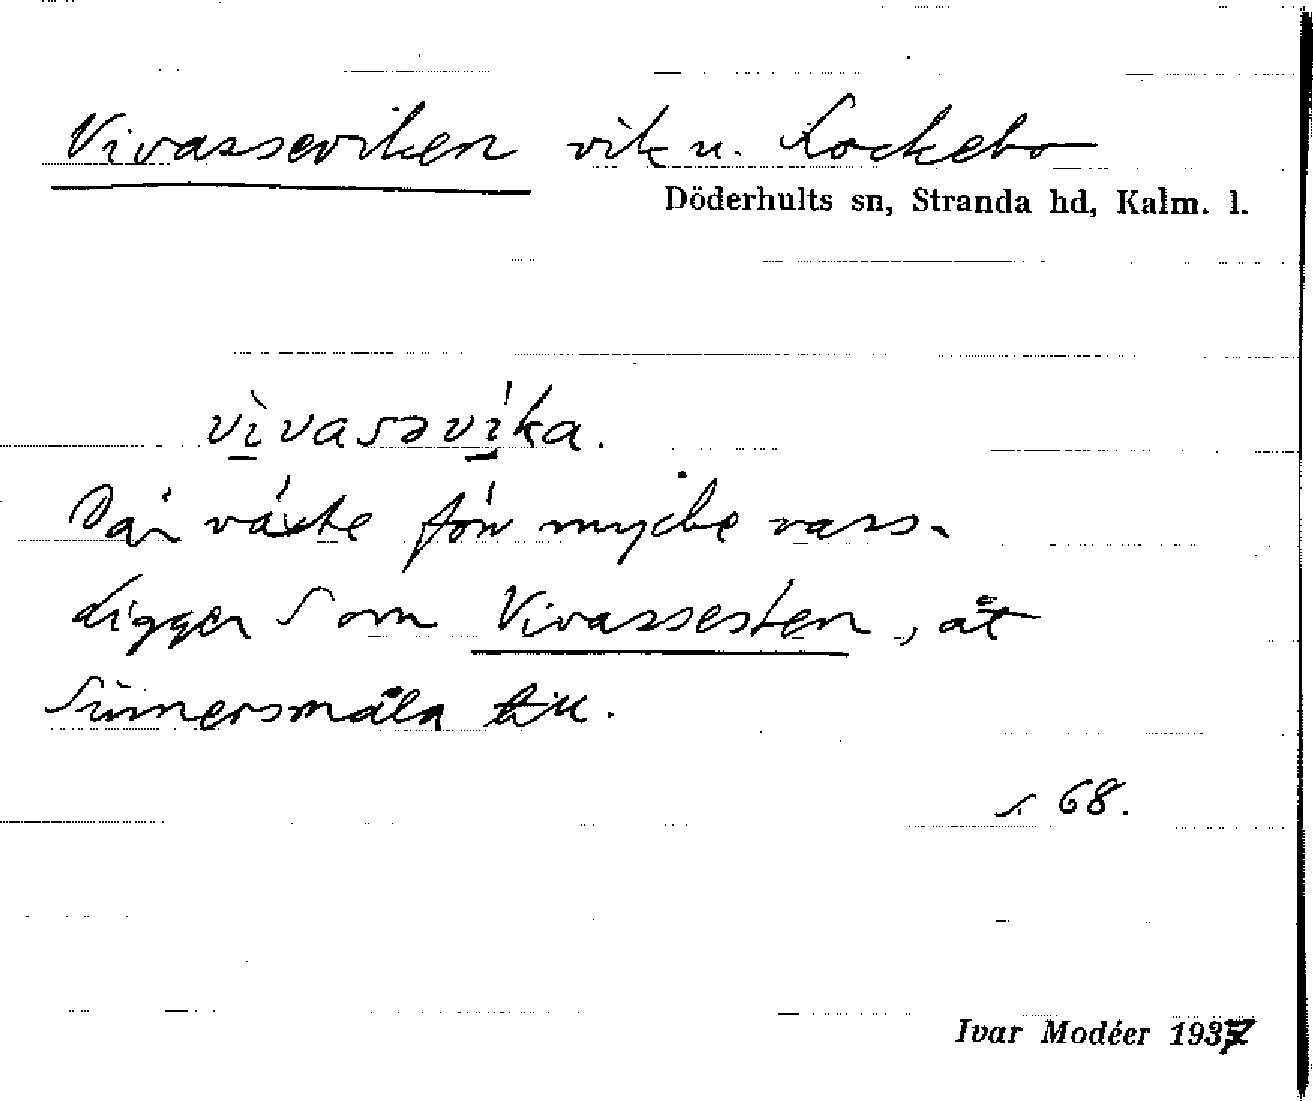 Vivasseviken vik u. Lockebo
Döderhults sn, Stranda hd, Kalm. l.
vìvasəvíka.
Där växte förr mycke vass.
Ligger som Vivassesten, åt
Simmersmåla till.
s. 68.
Ivar Modéer 1937